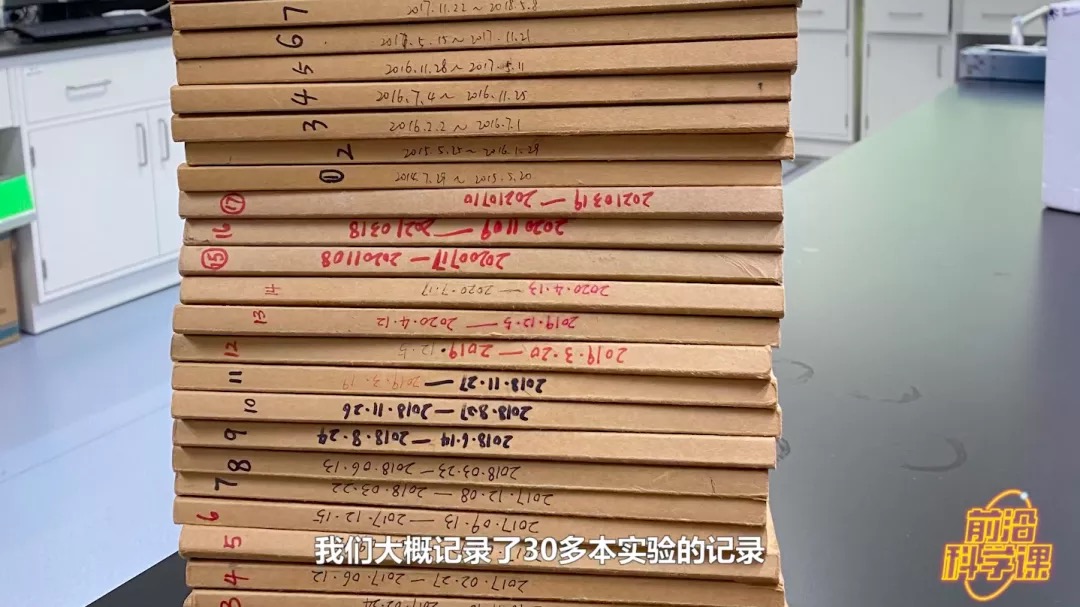 7 2017.11.22 ~ 2018.5.8
6 2017.5.15 ~ 2017.11.21
5 2016.11.28 ~ 2017.5.11
4 2016.7.4 ~ 2016.11.25
3 2016.2.2 ~ 2016.7.1
2 2015.5.25 ~ 2016.1.29
① 2014.7.29 ~ 2015.5.20
⑰ 20210319 — 20210710
16 20201109 — 20210318
⑮ 20200717 — 20201108
14 2020.4.13 — 2020.7.17
13 2019.12.5 — 2020.4.12
12 2019.3.20 — 2019.12.5
11 2018.11.27 — 2019.3.19
10 2018.8.27 — 2018.11.26
9 2018.6.14 — 2018.8.24
8 2018.03.23 — 2018.06.13
7 2017.12.08 — 2018.03.22
6 2017.09.13 — 2017.12.15
5
4 2017.02.27 — 2017.06.12
3
我们大概记录了30多本实验的记录
前沿
科学课